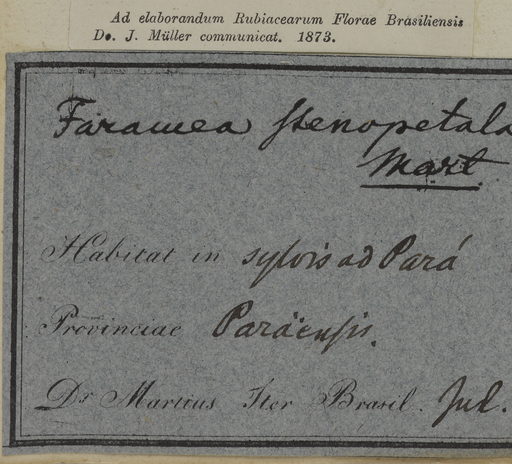 Ad elaborandum Rubiacearum Florae Brasiliensis
Dr. J. Müller communicat. 1873.
Faramea stenopetala
Mart.
Habitat in sylvis ad Pará
Provinciae Paraënsis.
Dr Martius Iter Brasil. Jul.